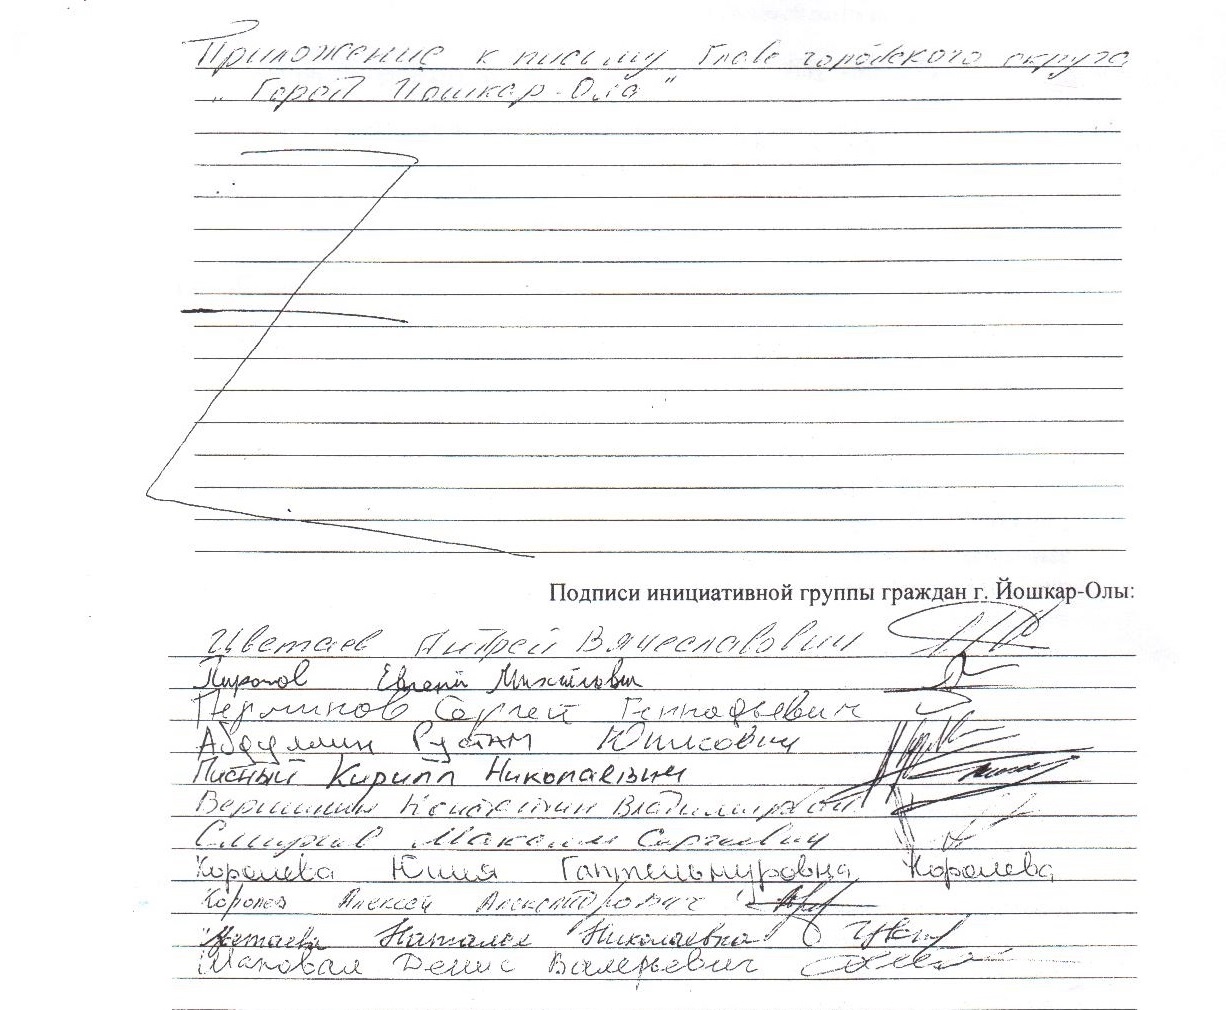 Приложение к письму Главе городского округа
"Город Йошкар-Ола"
Подписи инициативной группы граждан г. Йошкар-Олы:
Цветаев Андрей Вячеславович
Евгений Михайлович
Перминов Сергей Геннадьевич
Абдуллин Рустам Юнисович
Писный Кирилл Николаевич
Вершинин Константин Владимирович
Смирнов Максим Сергеевич
Королева Юлия Гаптельнуровна Королева
Королев Алексей Александрович
Цветаева Наталья Николаевна
Денис Валерьевич